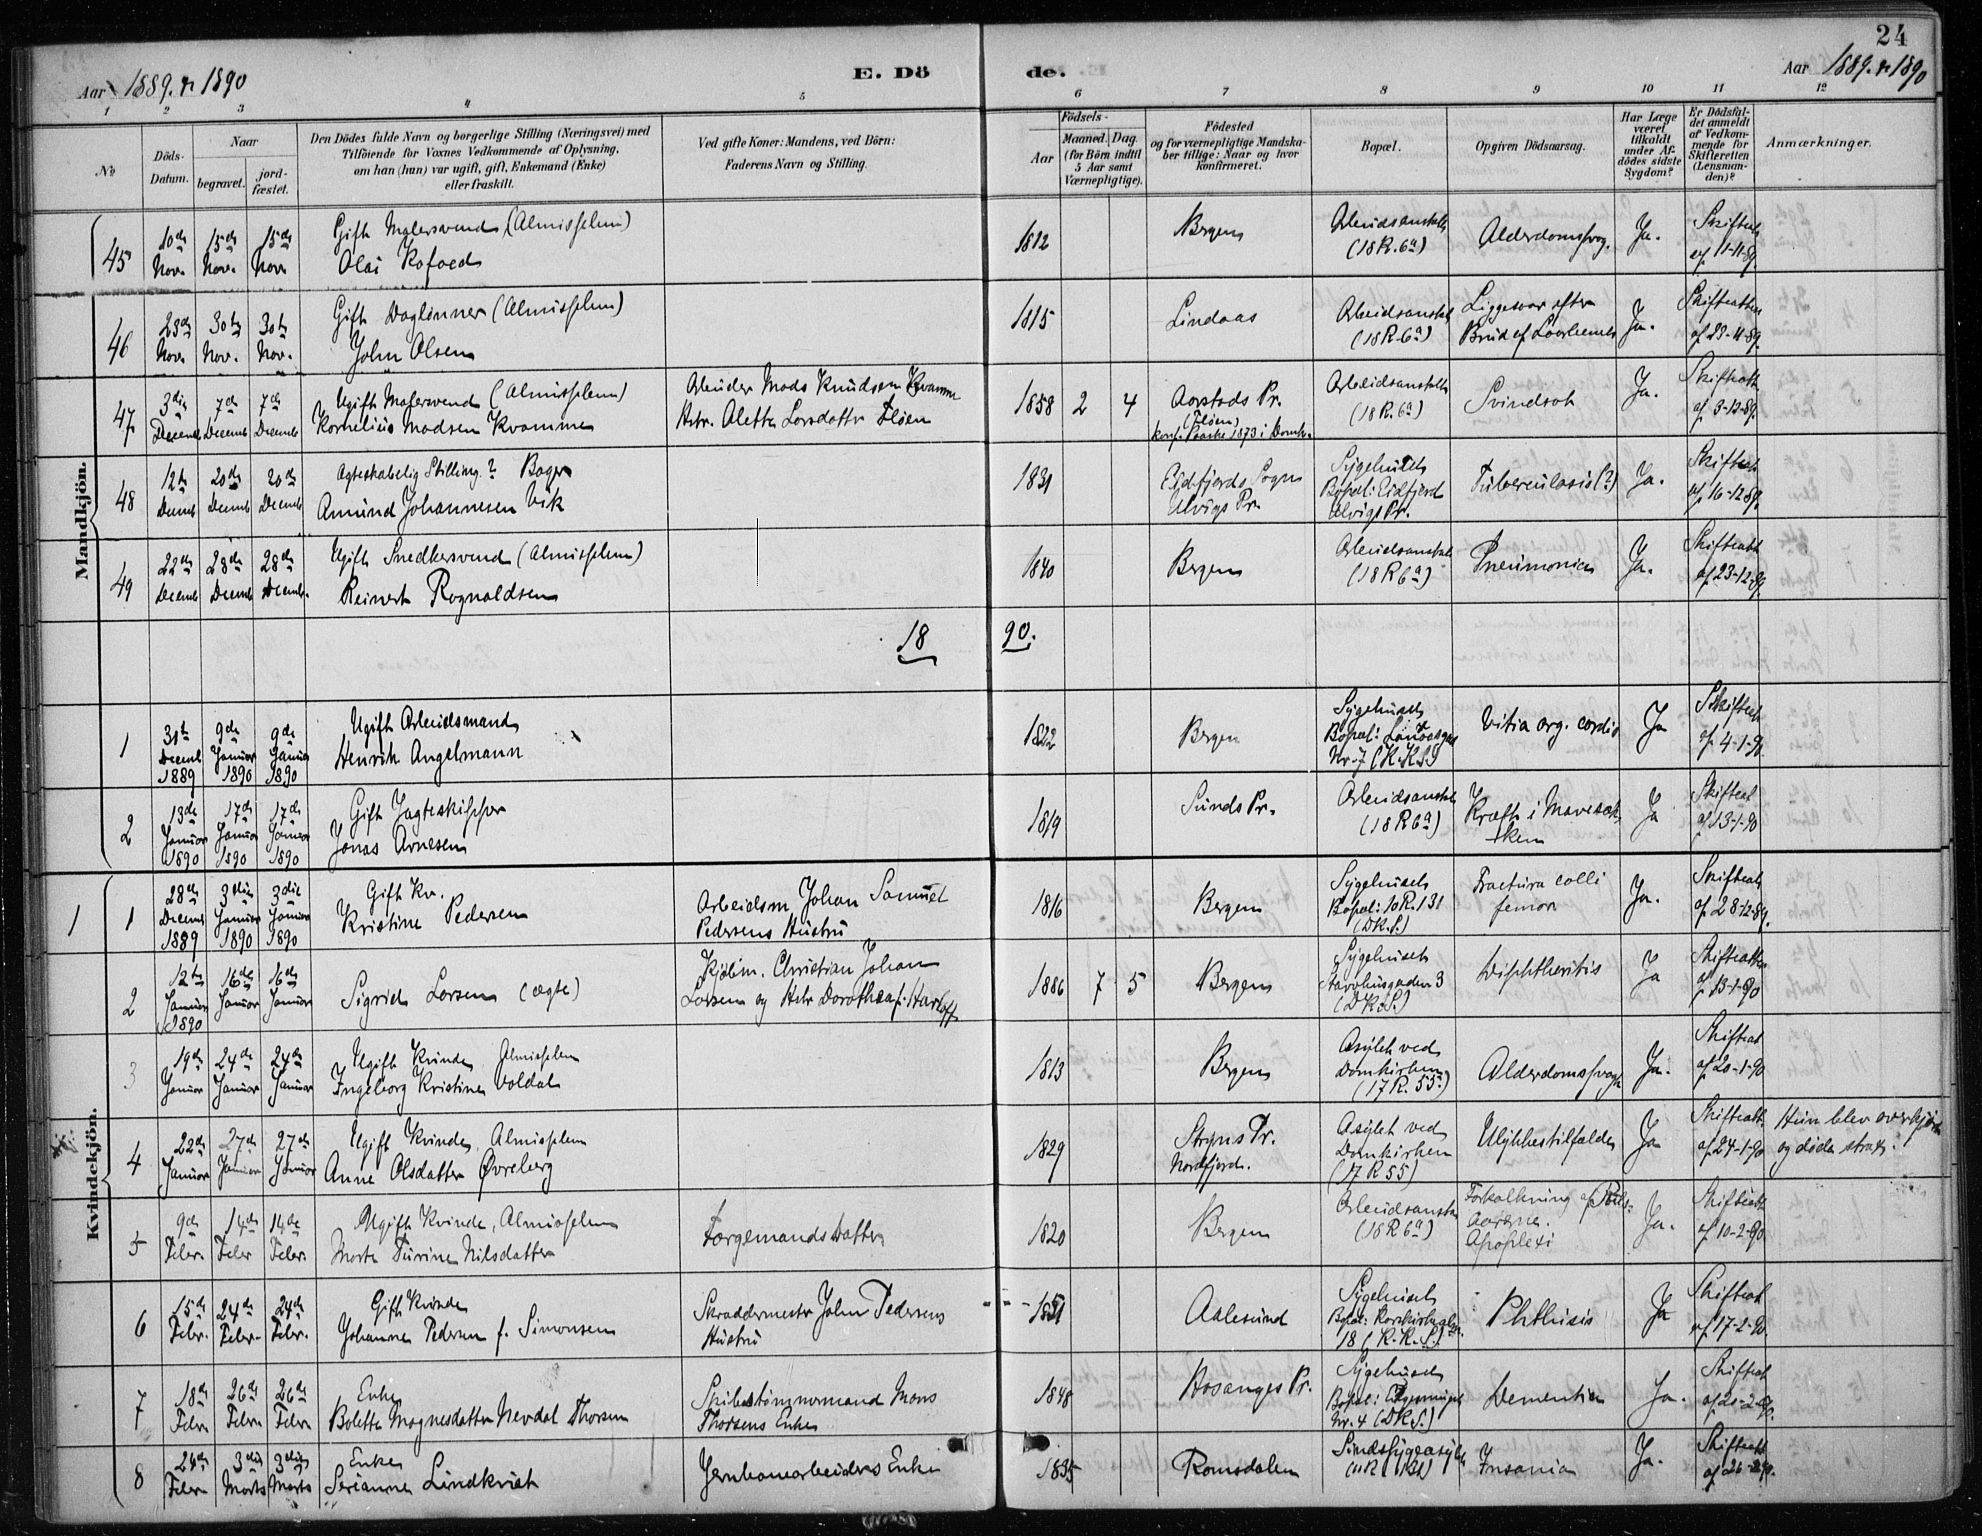 24
Aar 1889. & 1890
E. Dö
de.
Aar 1889. & 1890
1 2 3 4 5 6 7 8 9 10 11 12
No
Döds-
Datum.
Naar
begravet.
jord-
fæstet.
Den Dödes fulde Navn og borgerlige Stilling (Næringsvei) med
Tilföiende for Voxnes Vedkommende af Oplysning,
om han (hun) var ugift, gift, Enkemand (Enke)
eller fraskilt.
Ved gifte Koner: Mandens, ved Börn:
Faderens Navn og Stilling.
Födsels-
Aar
Maaned. Dag.
(for Börn indtil
5 Aar samt
Værnepligtige).
Födested
og for værnepligtige Mandska-
ber tillige: Naar og hvor
konfirmeret.
Bopæl.
Opgiven Dödsaarsag.
Har Læge
været
tilkaldt
under Af-
dödes sidste
Sygdom?
Er Dödsfal-
det anmeldt
af Vedkom-
mende for
Skifteretten
(Lensman-
den)?
Anmærkninger.
Mandkjön.
45
10de Nov. 15de Nov. 15de Nov
Gift Malersvend (Almisselem)
Olai Kofoed
1812
Bergen
Arbeidsanstalt
(18 R. 6a)
Alderdomssvag.
Ja.
Skifteatt
af 11-11-89.
46
23de Nov. 30te Nov. 30te Nov.
Gift Daglönner (Almisselem)
John Olsen
1815
Lindaas
Arbeidsanstalt
(18 R. 6a)
Liggesaar efter
Brud af Laarbenet
Ja.
Skifteatten
af 23-11-89.
47
3die Decemb 7de Decemb 7de Decemb
Ugift Malersvend (Almisselem)
Kornelius Madsen Kvamme
Arbeider Mads Knudsen Kvamme
Hstr. Alette Larsdatter Fløen
1858 2 4
Aarstads Pr.
(Fløen)
konf. Paaske 1873 i Domk.
Arbeidsanstalt
(18 R. 6a)
Svindsot
Ja.
Skifteatt
af 3-12-89.
48
12te Decemb 20de Decemb 20de Decemb
Ægteskabelig Stilling? Bager
Amund Johannesen Vik
1831
Eidfjords Sogn
Ulvigs Pr.
Sygehuset
Bopæl: Eidfjord
Ulvigs Pr.
Tuberculosis (?)
Ja.
Skifteatt
af 16-12-89.
49
22de Decemb 28de Decemb 28de Decemb.
Ugift Snedkersvend (Almisselem)
Reinert Rognaldsen
1840
Bergen
Arbeidsanstalt
(18 R 6a)
Pneumonia
Ja.
Skifteatt
af 23-12-89.
18 90.
1
31te Decemb 1889 9de Januar 1890 9de Januar 1890
Ugift Arbeidsmand
Henrik Angelmann
1822
Bergen
Sygehuset
Nr. 7 (K.K.S.)
Vitia org. cordis
Ja
Skifteatt
af 4-1-90.
2
13de Januar 1890 17de Januar 1890 17de Januar 1890
Gift Jagteskipper
Jonas Arnesen
1819
Sunds Pr.
Arbeidsanstalt
(18 R 6a)
Kræft i Mavesæk
ken
Ja
Skifteatt
af 13-1-90
Kvindekjön.
1 1
28de Decemb 1889 3die Januar 1890 3die Januar 1890
Gift Kv.
Kristine Pedersen
Arbeidsm. Johan Samuel
Pedersens Hustru
1816
Bergen
Sygehuset
Bopæl: 10 R. 131
(DK.S.)
Fractura colli
femor
Ja.
Skifteatt
af 28-12-89.
2
12te Januar 1890 16de Januar 16de Januar
Sigrid Larsen (ægte)
Kjøbm. Christian Johan
Larsen og Hstr Dorothea f. Harloff
1886 7 5
Bergen
Sygehuset
(DK.S.)
Diphtheritis
Ja
Skifteatten
af 13-1-90
3
19de Januar 24de Januar 24de Januar
Ugift Kvinde Almisselem
Ingeborg Kristine Voldal
1813
Bergen
Asylet ved
Domkirken
(17 R. 55a)
Alderdomssvagh
Ja.
Skifteatt
af 20-1-90
4
22de Januar 27de Januar 27de Januar
Ugift Kvinde Almisselem
Anne Olsdatter Øvreberg
1829
Stryns Pr.
Nordfjord.
Asylet ved
Domkirken
(17 R 55)
Ulykkestilfælde
Ja
Skifteatt
af 24-1-90
Hun blev overkjørt
og døde straks.
5
9de Febr 14de Febr 14de Febr
Ugift Kvinde, Almisselem
Marte Turine Nilsdatter
Færgemands Datter
1820
Bergen
Arbeidsanstalt
(18 R 6a)
Forkalkning af Puls-
Aarerne.
Apoplexi
Ja.
Skifteatt
af 10-2-90
6
15de Febr. 24de Febr. 24de Febr.
Gift Kvinde
Johanne Pedersen f. Simonsen
Skræddermester John Pedersens
Hustru
1851
Aalesund
Sygehuset
18 (K.K.S.)
Phthisis
Ja
Skifteatt
af 17-2-90
7
18de Febr 26de Febr 26de Febr
Enke
Bolette Magnesdatter Nevdal Thorsen
Skibstömmermand Mons
Thorsens Enke
1848
Hosanger Pr.
Sygehuset
Nr. 4 (DK.S.)
Dementia
Ja.
Skifteatt
af 20-2-90.
8
24de Febr 3die Marts 3die Marts
Enke
Serianne Lindkvist
Jernbanearbeiders Enke
1835
Romsdalen
Sindssygeasylet
Insania
Ja.
Skifteatt
af 26-2-90.